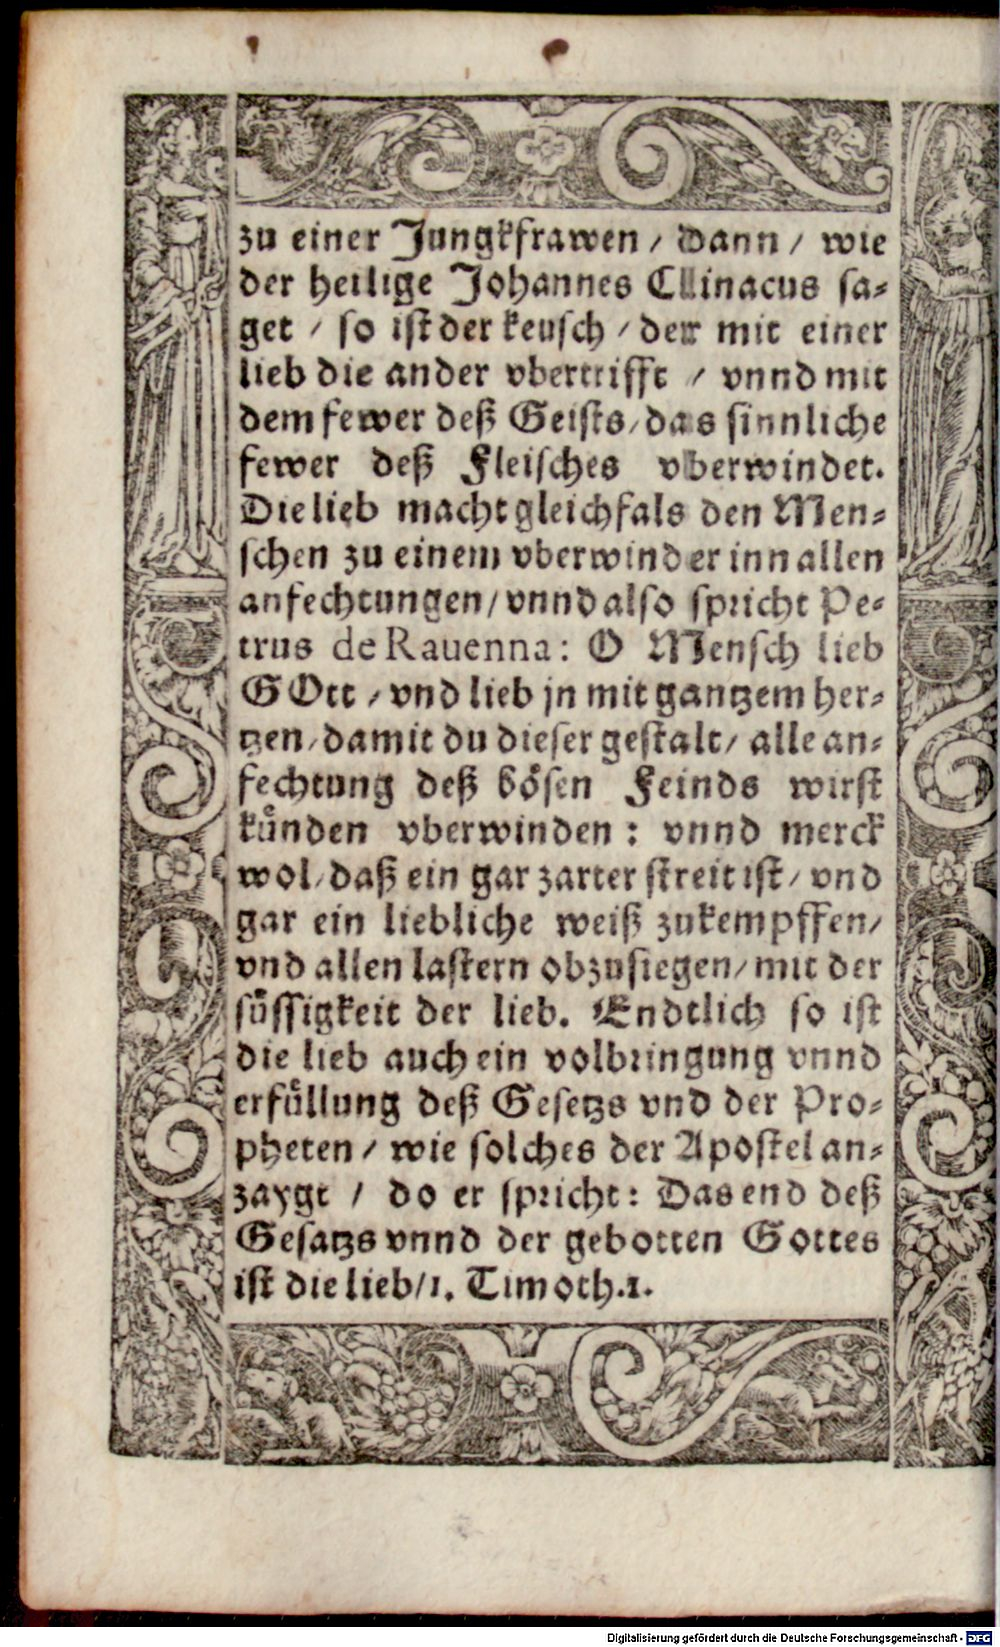 zu einer Jungkfrawen / Dann / wie
der heilige Johannes Clinacus sa⸗
get / so ist der keusch / der mit einer
lieb die ander vbertrifft / vnnd mit
dem fewer deß Geists / das sinnliche
fewer deß Fleisches vberwindet.
Die lieb macht gleichfals den Men⸗
schen zu einem vberwinder inn allen
anfechtungen / vnnd also spricht Pe⸗
trus de Rauenna: O Mensch lieb
GOtt / vnd lieb jn mit gantzem her⸗
tzen / damit du dieser gestalt / alle an⸗
fechtung deß boͤsen Feinds wirst
kuͤnden vberwinden : vnnd merck
wol / daß ein gar zarter streit ist / vnd
gar ein liebliche weiß zukempffen /
vnd allen lastern obzusiegen / mit der
suͤssigkeit der lieb. Endtlich so ist
die lieb auch ein volbringung vnnd
erfuͤllung deß Gesetzs vnd der Pro⸗
pheten / wie solches der Apostel an⸗
zaygt / do er spricht: Das end deß
Gesatzs vnnd der gebotten Gottes
ist die lieb / 1. Timoth.1.
Digitalisierung gefördert durch die Deutsche Forschungsgemeinschaft - DFG